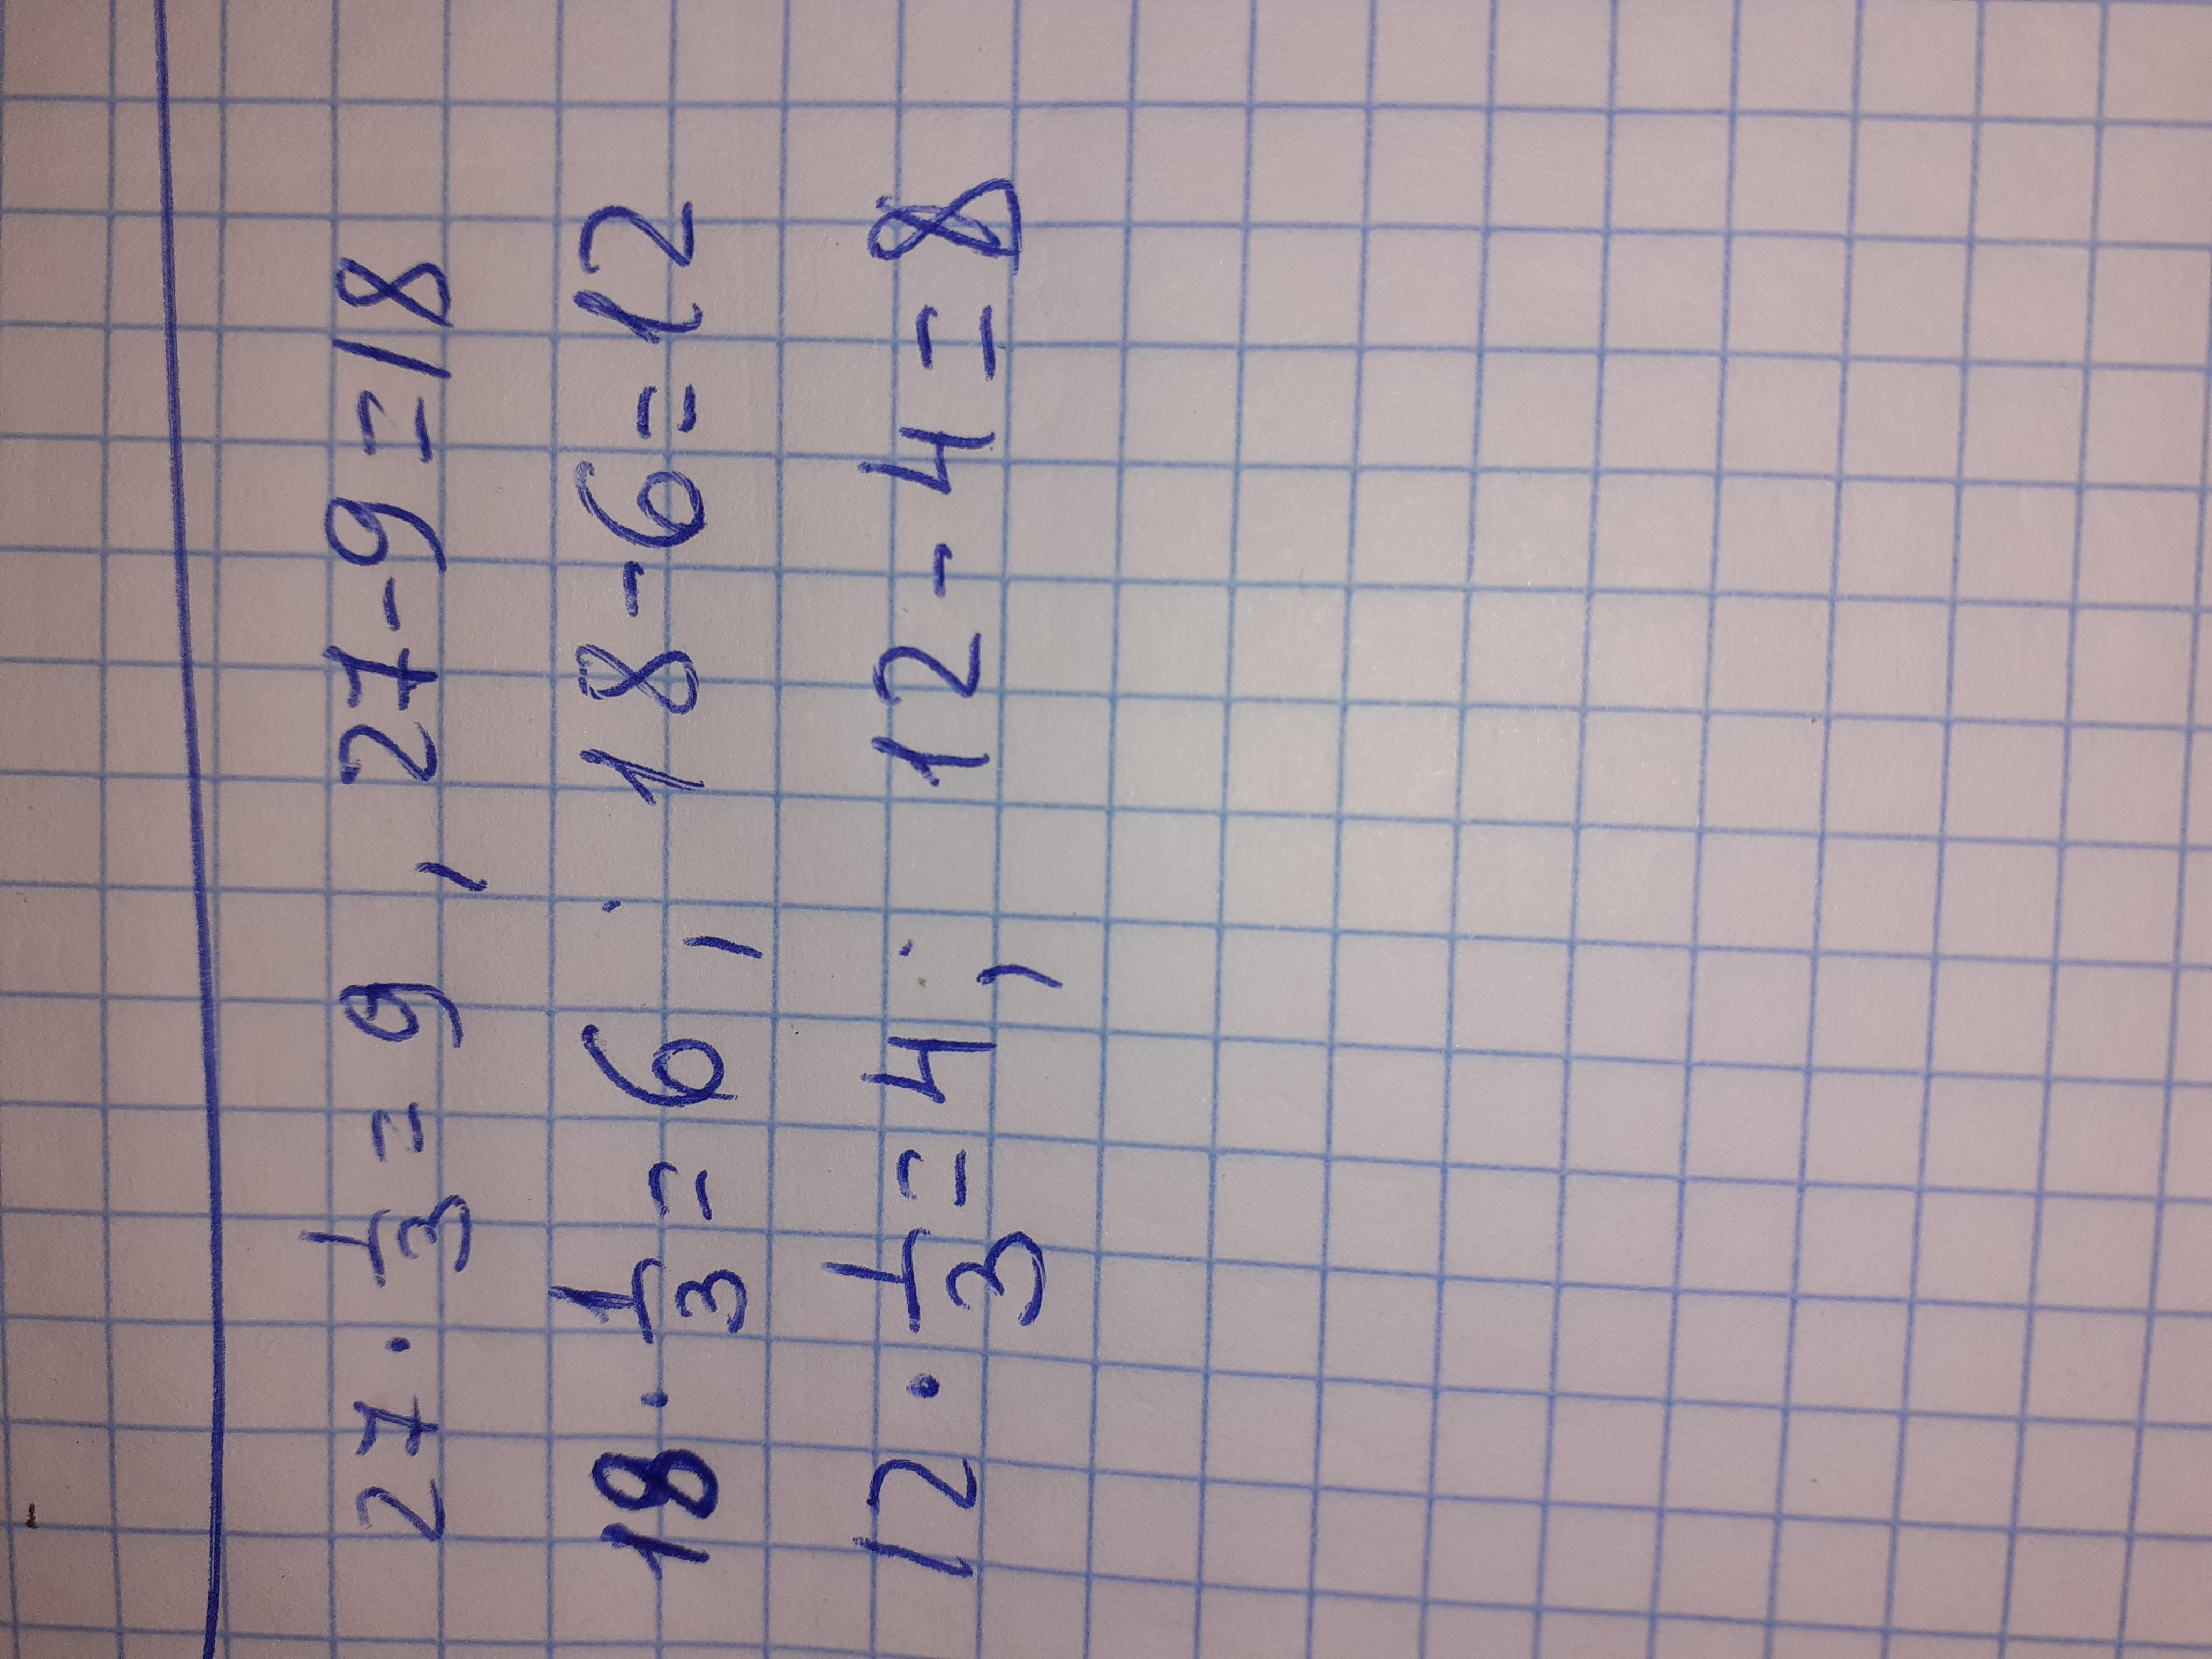 27 · 1/3 = 9 , 27 - 9 = 18
18 · 1/3 = 6 ; 18 - 6 = 12
12 · 1/3 = 4 ; 12 - 4 = 8